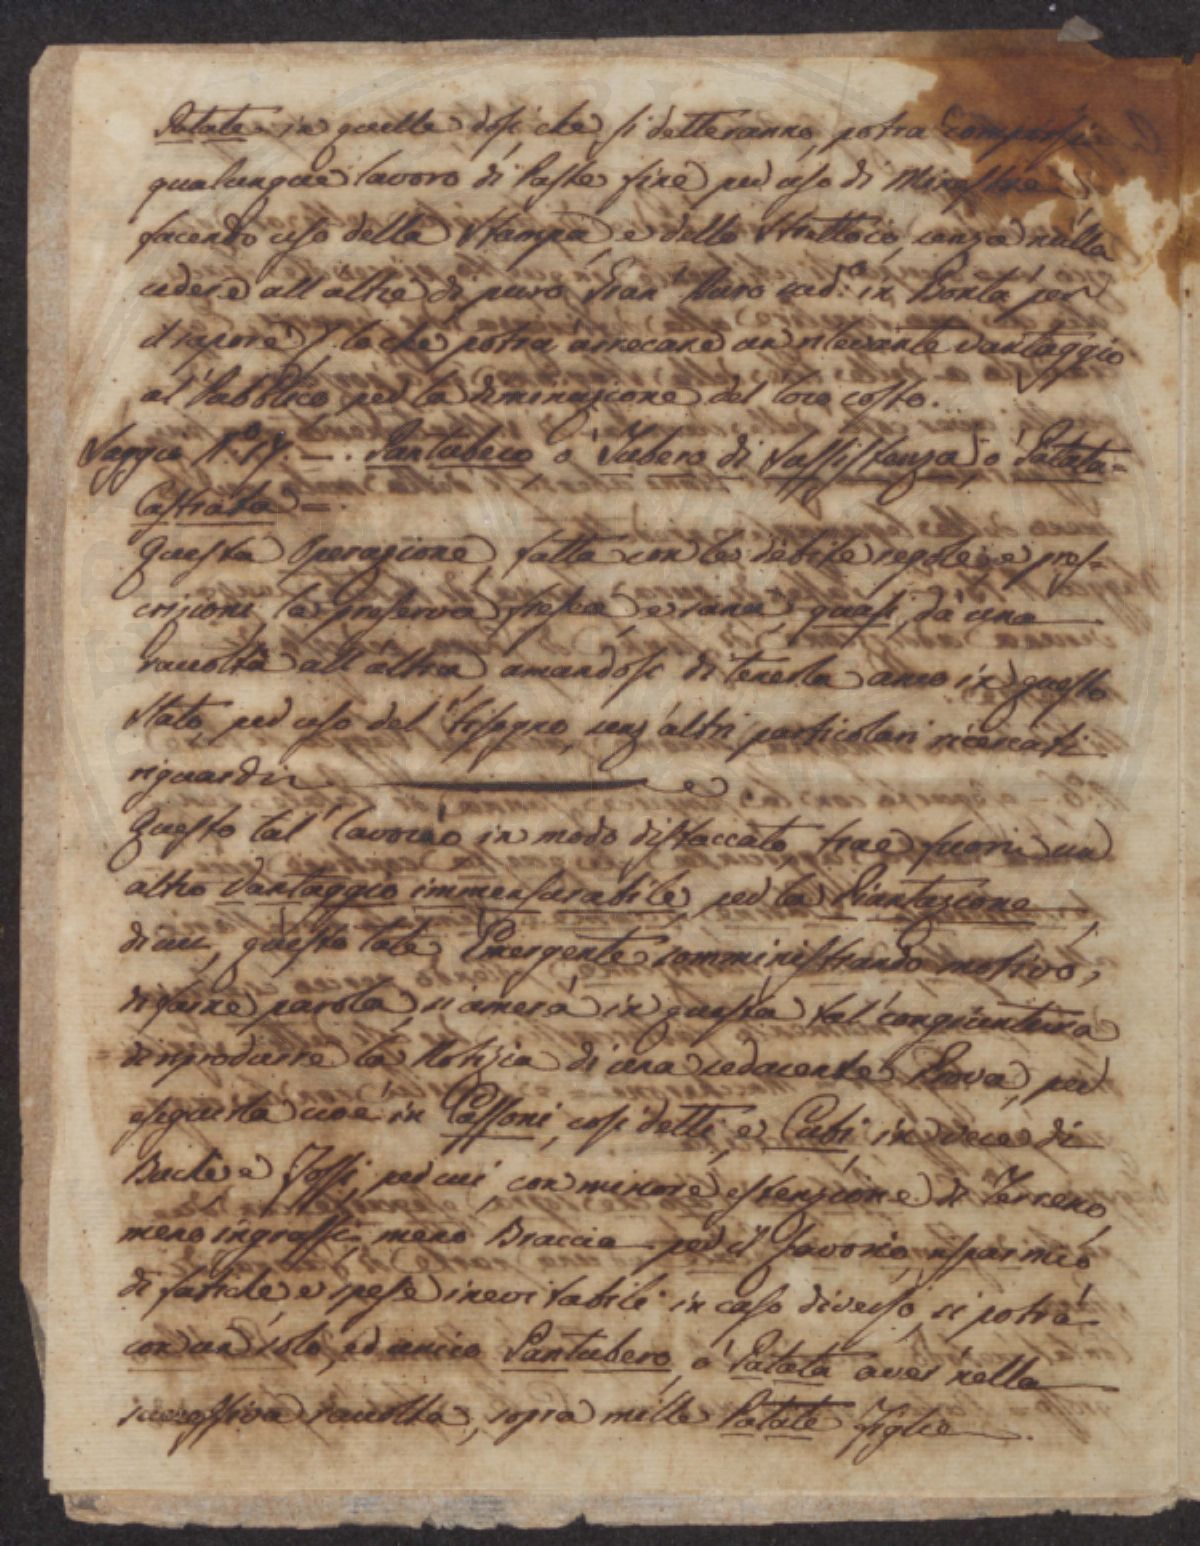 Patate in quelle dosi che si detteranno, potrà comporsi
qualunque lavoro di Paste fine per uso di Minestre
facendo uso della Stampa, e dello Strettoio, senza nulla
cedere all'altre di puro Gran Duro in Bontà per
il sapore; lo che potrà arrecare un rilevante vantaggio
al Pubblico per la diminuzione del loro costo.
Saggio N.º 17. — . Pantubero, o Tubero di Sussistenza, o Patata=
Castrata = .
Questa Operazione fatta con le debite regole, e pres=
crizioni la preserva fresca, e sana, quasi da una
raccolta all'altra amandosi di tenerla anco in questo
Stato, per uso del bisogno, senz'altri particolari ricercati
riguardi
Questo tal lavoro in modo distaccato trae fuori un
altro Vantaggio immensurabile, per la Piantazione
di cui, questo tale Emergente somministrando motivo,
di farne parola, si amerà in questa tal congiuntura
di riprodurre la Notizia di una Prova, per
eseguirla cioè in Cassoni, così detti, e Cubi, in vece di
Buche e Fossi, per cui, con minore estenzione di Terreno,
meno ingrassi, meno Braccia per il lavorio, risparmio
di fatiche e spese inevitabili in caso diverso, si potrà
con un solo, ed unico Pantubero, o Patata aver nella
successiva raccolta, sopra mille Patate Figlie .